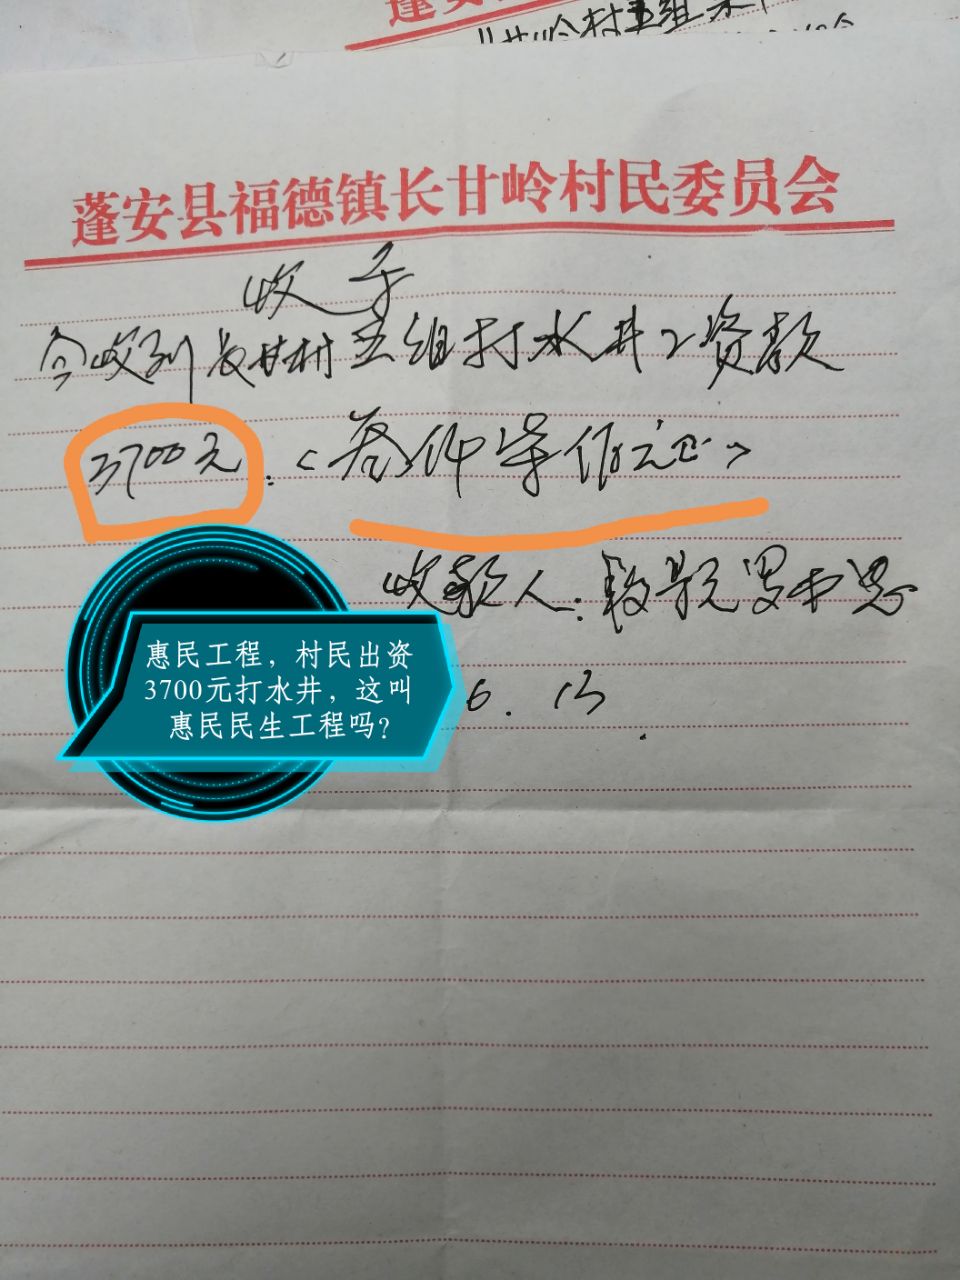 蓬安县福德镇长甘岭村民委员会
收
今收到长甘村五组打水井工资款
3700元:(叁仟柒佰元正)
收款人:
6.13
惠民工程,村民出资
3700元打水井,这叫
惠民民生工程吗?